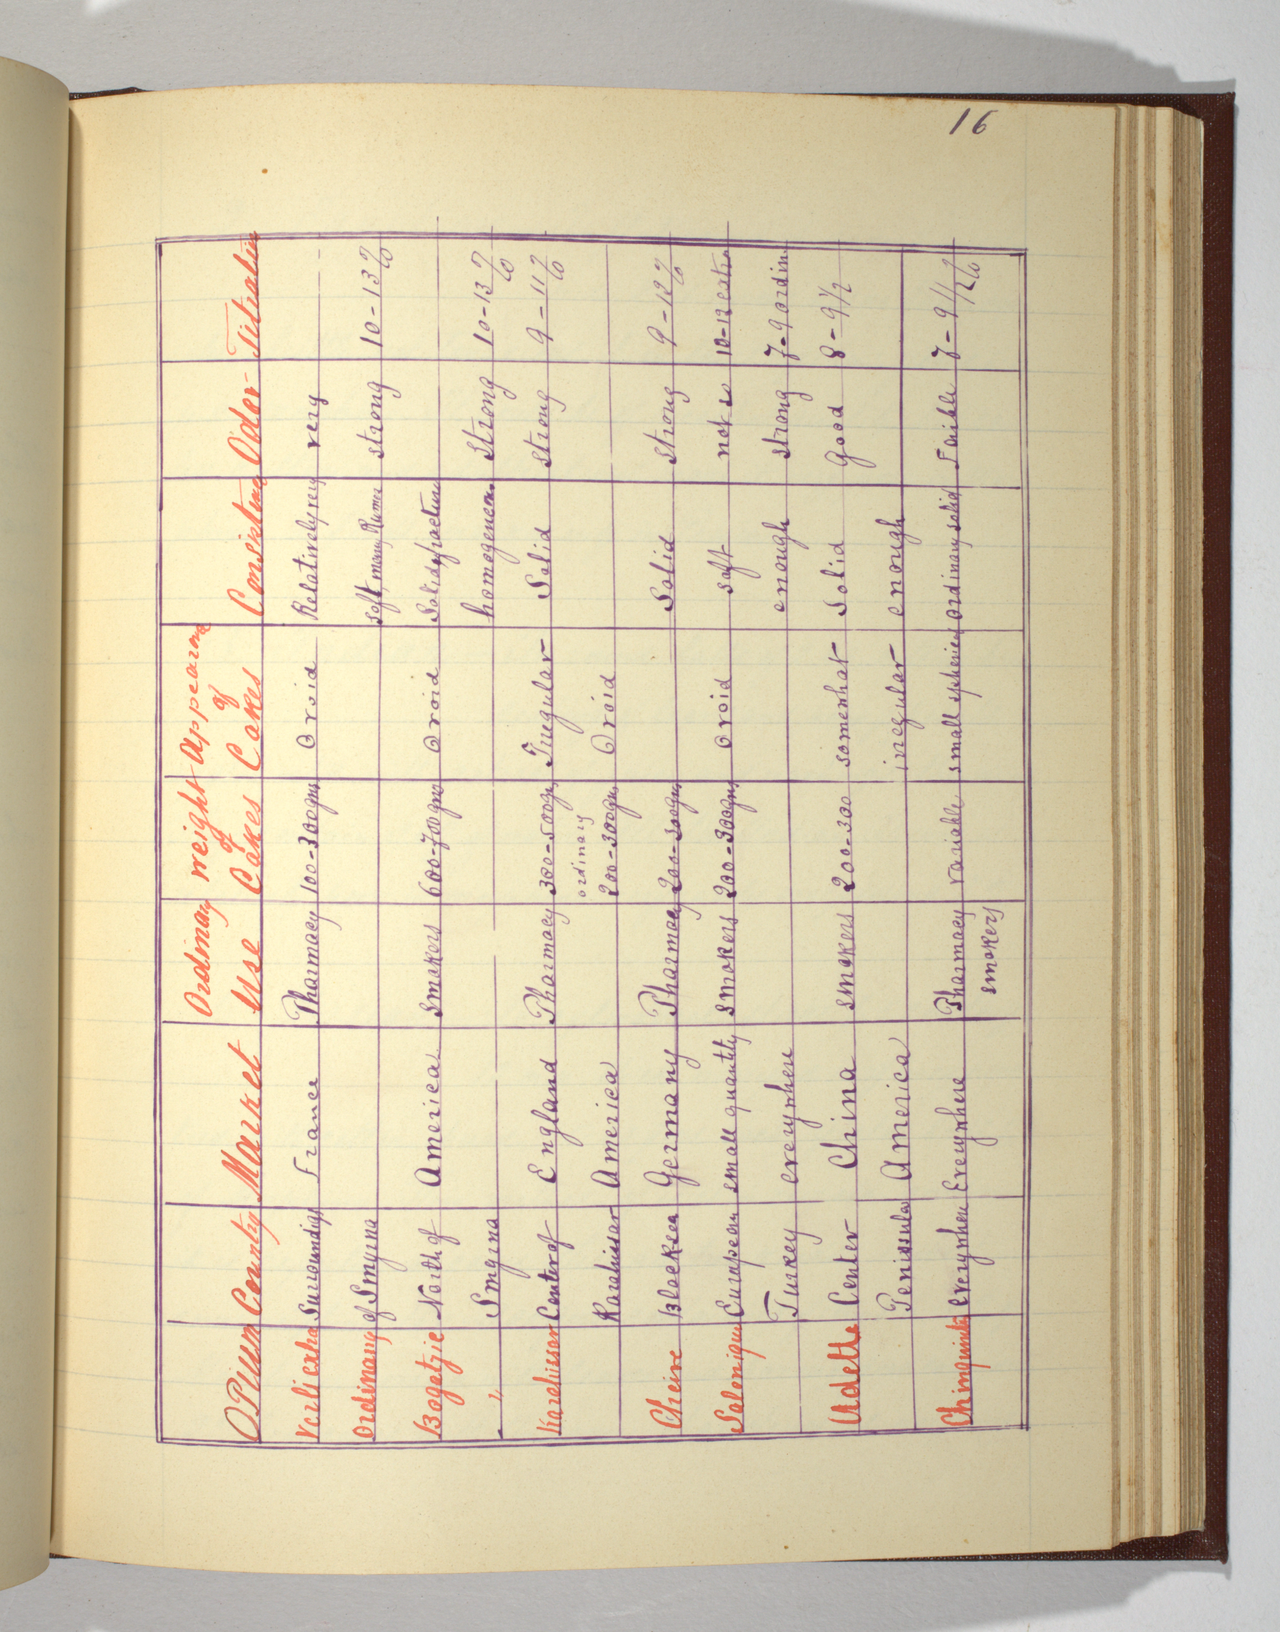 16
Ordinary weight Appearance
of of
OPium Country Market Use Cakes Cakes Consistine Oder- Titration
Yerli extra Surroundigs France Pharmacy 100-300grs Ovoid Relatively very very
Ordinary of Smyrna soft many Rumes strong 10-13%
Bogatzie North of America smokers 600-700grs Ovoid Solid, fracture
" Smyrna homogeneous Strong 10-13%
Karahissar Center of England Pharmacy 300-500grs Irregular Solid strong 9-11%
ordinary
Karahissar America 200-300grs Ovoid
Cheive Blacksea Germany Pharmacy 200-300grs Solid Strong 9-12%
Salonique Eurapean small quantity smokers 200-300grs Ovoid soft not so 10-12 extra
Turkey everywhere enough strong 7-9 ordin.
Adette Center China smokers 200-300 somewhat Solid Good 8-9 1/2
Penissula America irregular enough
Chinquinte everywhere Everywhere Pharmacy variable small spheries ordinary solid Faible 7-9 1/2%
smokers